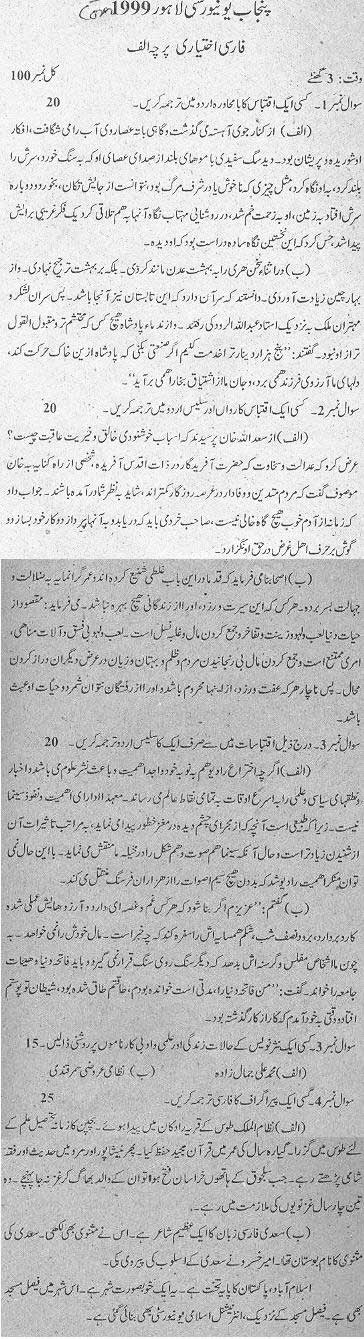 پنجاب یونیورسٹی لاہور 1999
فارسی اختیاری پرچہ الف
وقت: 3 گھنٹے کل نمبر 100
سوال نمبر 1۔ کسی ایک اقتباس کا بامحاورہ اردو میں ترجمہ کریں۔ 20
(الف) از کنار جوی آہستہ می گذشت و گاہی باتہ عصا روی آب رامی شگافت، افکار
او شوریدہ و پریشان بود۔ دید سگ سفیدی با موھای بلند از صدای عصای او کہ بہ سنگ خورد، سرش را
بلند کرد، بہ او نگاہ کرد، مثل چیزی کہ ناخوش یا در شرف مرگ بود، نتوانست از جایش تکان بخورد و دوبارہ
سرش افتاد بہ زمین، او بہ زحمت خم شد، در روشنائی مہتاب نگاہ آنہا بہ ھم تلاقی کرد یک فکر غریبی برایش
پیدا شد، حس کرد کہ این نخستین نگاہ سادہ و راست بود کہ او دیدہ۔
(ب) در اثناء سخن ھری را بہ بہشت عدن مانند کردی۔ بلکہ بر بہشت ترجیح نہادی۔ و از
بہار چین زیادت آوردی۔ دانستند کہ سرآن دارد کہ این تابستان نیز آنجا باشد۔ پس سران لشکر و
مہتران ملک بہ نزدیک استاد عبداللہ الرودکی رفتند۔ و از ندماء پادشاہ ھیچ کس محتشم تر و مقبول القول
تر از او نبود۔ گفتند: "پنج ہزار دینار ترا خدمت کنیم اگر صنعتی بکنی کہ پادشاہ ازین خاک حرکت کند،
دلہای ما آرزوی فرزند ھمی برد، و جان ما از اشتیاق بخارا ھمی برآید"۔
سوال نمبر 2۔ کسی ایک اقتباس کا رواں اور سلیس اردو میں ترجمہ کریں۔ 20
(الف) از سعد اللہ خان پرسیدند کہ اسباب خوشنودی خالق و خیریت عاقبت چیست؟
عرض کرو کہ عدالت و سخاوت کہ حضرت آفریدگار در ذات اقدس آفریدہ، شخصی از راہ کنایہ بہ خان
موصوف گفت کہ مردم متدین و وفادار در عرصہ روزگار کمتر اند، شاید بہ نظر شما در آمدہ باشند۔ جواب داد
کہ زمانہ از آدم خوب ھیچ گاہ خالی نیست، صاحب خردی باید کہ دریابد و بہ آنہا پردازد و کار خود بسازد و
گوش بر حرف اھل غرض در حق او نگزارد۔
(ب) اصحابنا می فرماید کہ قدما در این باب غلطی شنیع کردہ اند و عمر گرانمایہ بہ ضلالت و
جہالت بسر بردہ۔ ھر کس کہ این سیرت ورزد، او را از زندگانی ھیچ بہرہ نباشد۔ می فرماید: مقصود از
حیات دنیا لعب و لہو و زینت و تفاخر و جمع کردن مال و غلبہ نسل است۔ لعب و لہو بی فسق و آلات مناھی،
امری ممتنع است و جمع کردن مال بی رنجانیدن مردم و ظلم و بہتان و زبان در عرض دیگران دراز کردن
محال۔ پس ناچار ھر کہ عفت ورزد، از اینہا محروم باشد و او را از زندگان نتوان شمرد و حیات او عبث
باشد۔
سوال نمبر 3۔ درج ذیل اقتباسات میں سے صرف ایک کا سلیس اردو ترجمہ کریں۔ 20
(الف) اگرچہ اختراع رادیو ھم بہ نوبہ خود واجد اھمیت و باعث نشر علوم می باشد و اخبار
و نطقہای سیاسی و علمی را بہ اسرع اوقات بہ تمامی نقاط عالم می رساند۔ معہذا دارای اھمیت و نفوذ سینما
نیست۔ زیرا کہ طبیعی است آنچہ کہ از مجرای چشم دیدہ در مغز خطور پیدا می نماید، بہ مراتب تاثیرات آن
از شنیدن زیادتر است و حال آنکہ سینما ھم صوت و ھم شکل را در مخیلہ ما منتقش می نماید۔ با این حال نمی
توان منکر اھمیت رادیو شد کہ بدون ھیچ سیم اصوات را از ھزاران فرسنگ منتقل می کند۔
(ب) گفتم: "عزیزم اگر بنا شود کہ ھر کس غم و غصہ ای دارد و آرزوھایش عملی نشدہ
کارد بردارد، برود نصف شب، شکم ھمسایہ اش را سفرہ کند کہ چہ خبر است۔ مال خوش را نمی خواھد۔ بہ
چون ما اشخاص مفلس و گرسنہ اش بدھد کہ دیگر سنگ روی سنگ قرار نمی گیرد و باید فاتحہ دنیا و ھیئات
جامعہ را خواند۔ گفت: "من فاتحہ دنیا را، مدتی است خواندہ بودم، طاقتم طاق شدہ بود، شیطان تو پوستم
افتاد وقتی بہ خود آمدم کہ کار از کار گذشتہ بود۔
سوال نمبر 3۔ کسی ایک نثر نویس کے حالات زندگی اور علمی و ادبی کارناموں پر روشنی ڈالیں۔ 15
(الف) محمد علی جمال زادہ (ب) نظامی عروضی سمرقندی
سوال نمبر 4۔ کسی ایک پیراگراف کا فارسی ترجمہ کریں۔ 25
(الف) نظام الملک طوس کے قریہ رادکان میں پیدا ہوئے۔ بچپن کا زمانہ تحصیل علم کے
لئے طوس میں گزرا۔ گیارہ سال کی عمر میں قرآن مجید حفظ کیا۔ پھر نیشاپور اور مرو میں حدیث اور فقہ
شافی پڑھتے رہے۔ جب سلجوق کے ہاتھوں خراسان فتح ہوا تو ان کے والد بھاگ کر غزنہ جا پہنچے۔ وہ
تین چار سال غزنویوں کی ملازمت میں رہے۔
(ب) سعدی فارسی زبان کا ایک عظیم شاعر ہے۔ اس نے مثنوی بھی لکھی۔ سعدی کی
مثنوی کا نام بوستان تھا۔ امیر خسرو نے سعدی کے اسلوب کی پیروی کی۔
اسلام آباد، پاکستان کا پایہ تخت ہے۔ یہ ایک خوبصورت شہر ہے۔ اس شہر میں فیصل مسجد
بھی ہے۔ فیصل مسجد کے نزدیک، انٹرنیشنل اسلامی یونیورسٹی بھی بنائی گئی ہے۔